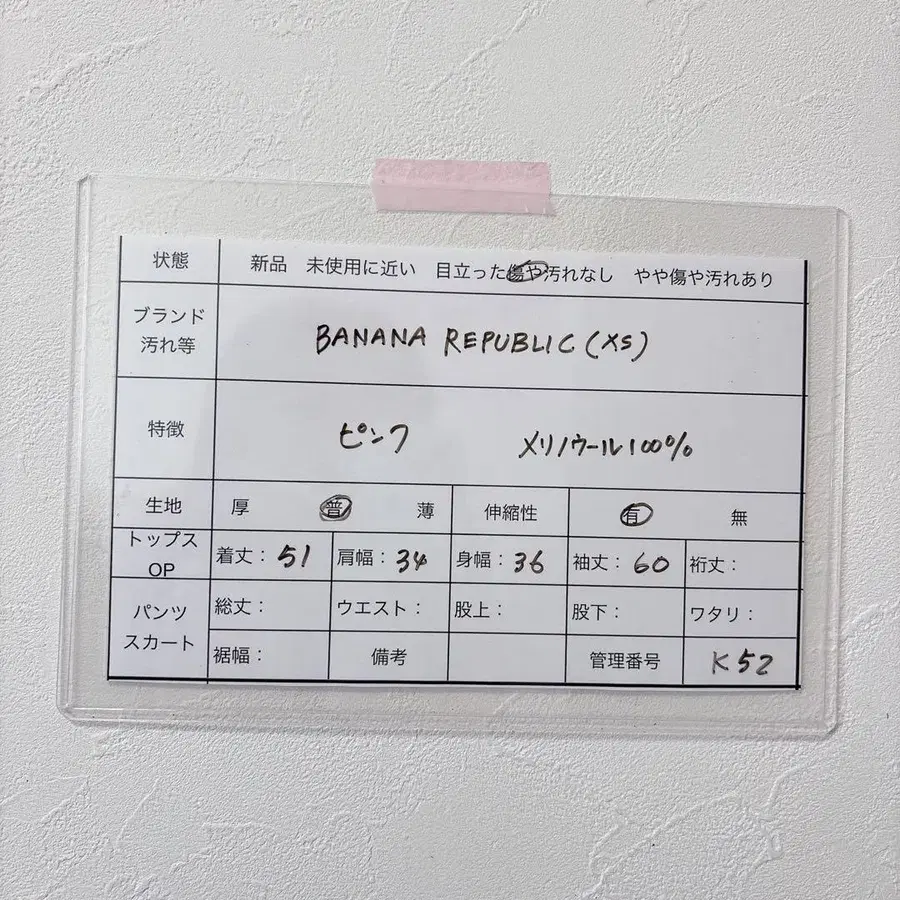 状態 新品 未使用に近い 目立った傷や汚れなし やや傷や汚れあり
ブランド 汚れ等 BANANA REPUBLIC (XS)
特徴 ピンク メリノウール100%
生地 厚 普 薄 伸縮性 有 無
トップス OP 着丈：51 肩幅：34 身幅：36 袖丈：60 裄丈：
パンツ スカート 総丈： ウエスト： 股上： 股下： ワタリ：
裾幅： 備考 管理番号 K52